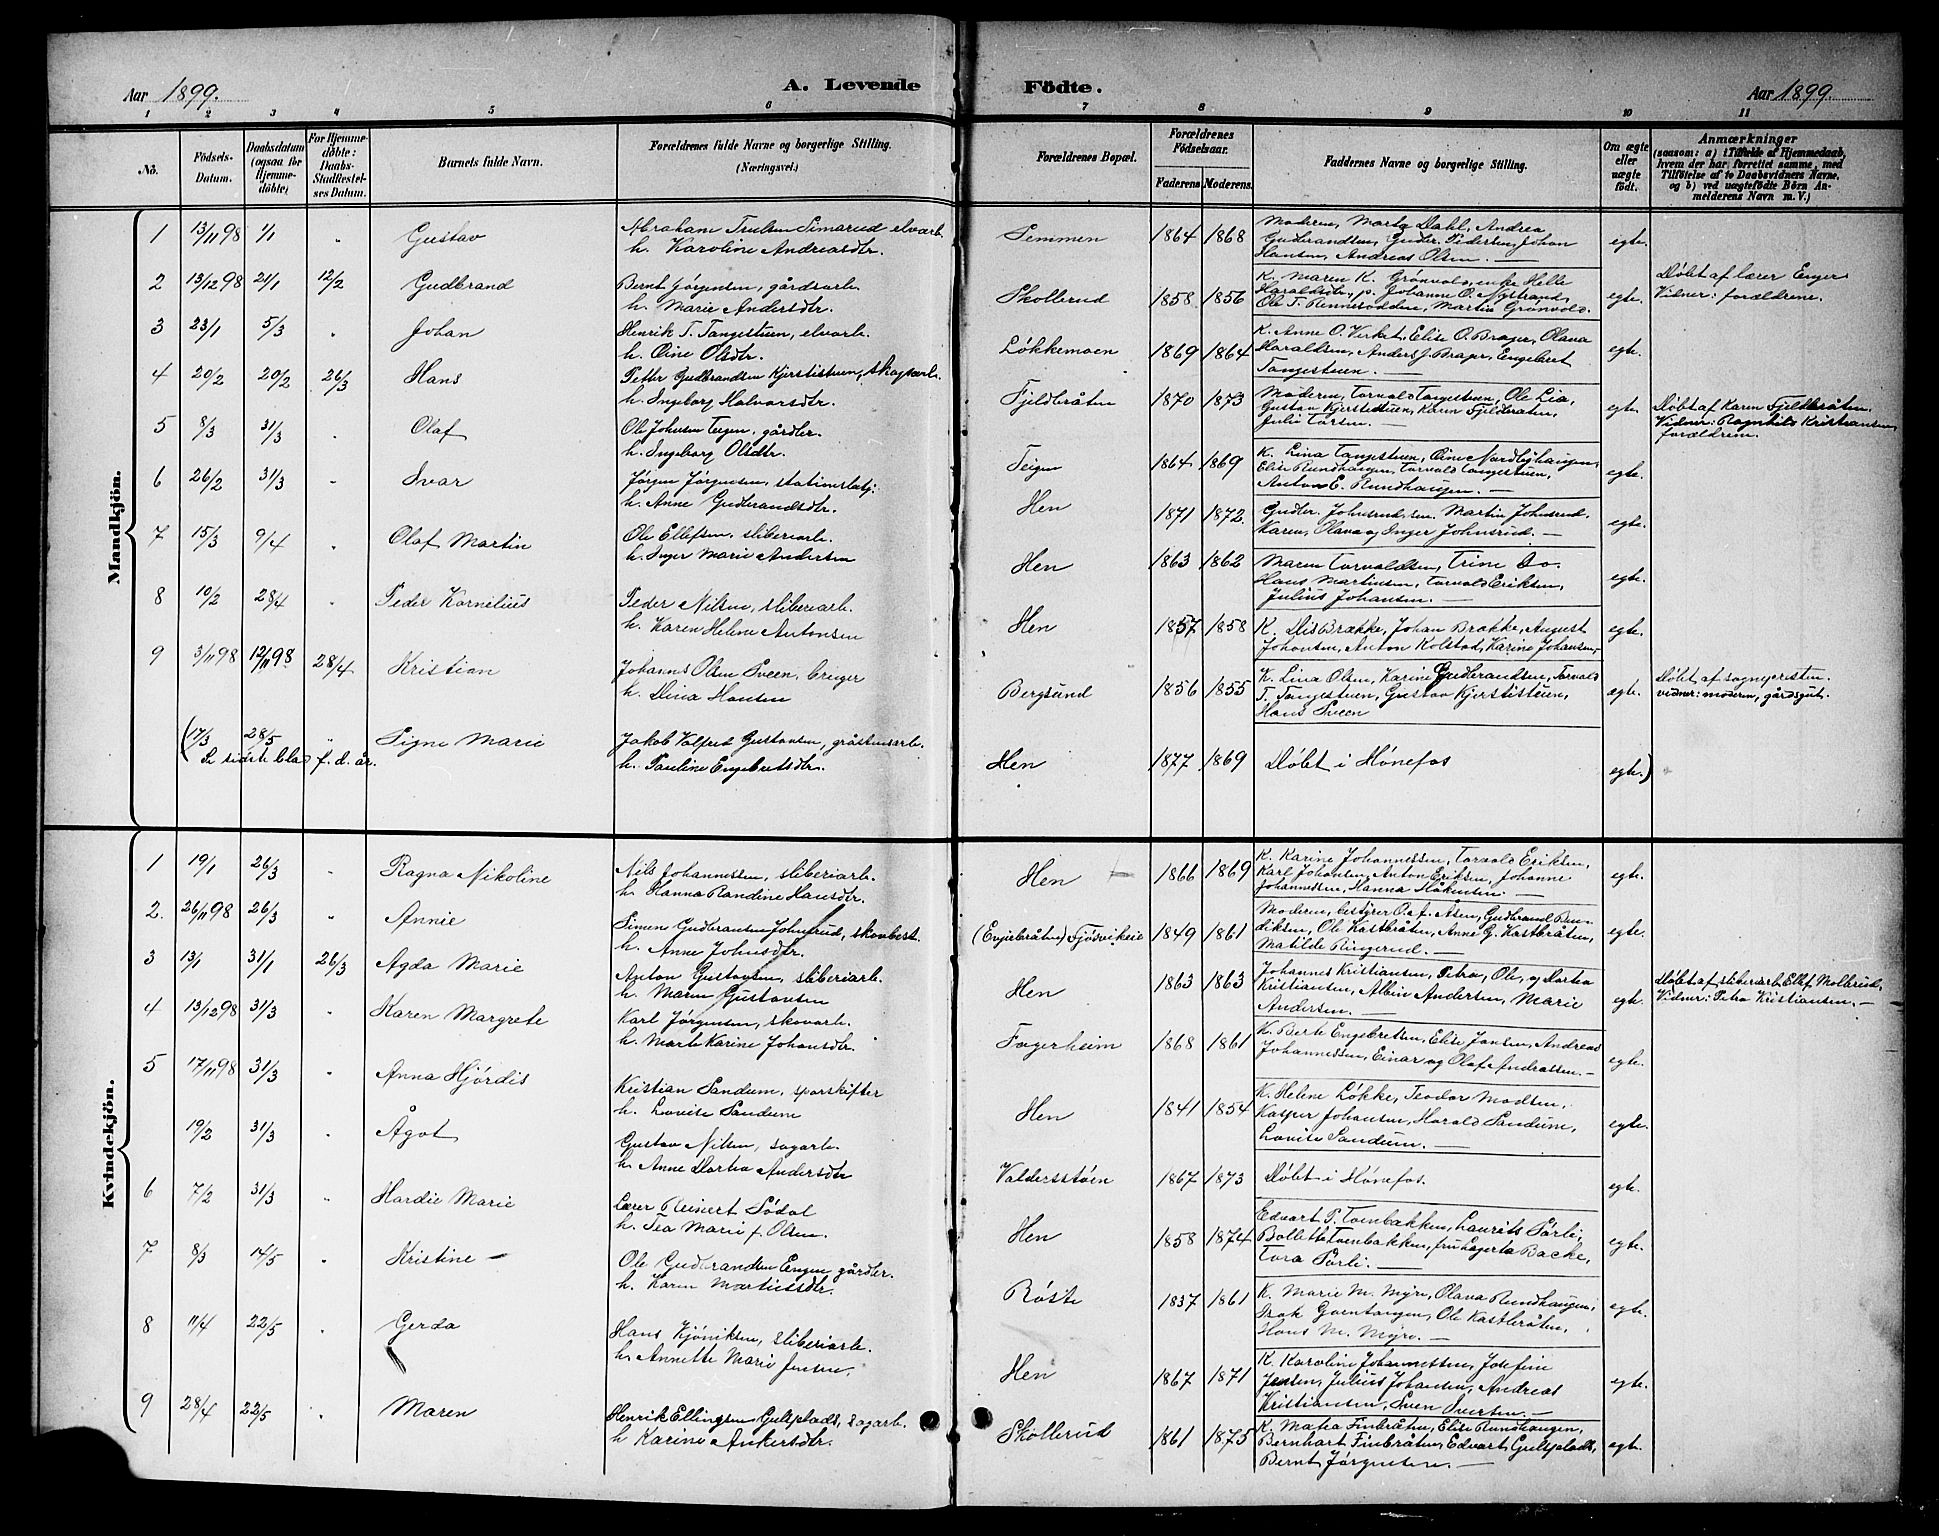 Aar 1899.
A. Levende
Födte.
Aar 1899.
1 2 3 4 5 6 7 8 9 10 11
No.
Födsels-
Datum.
Daabsdatum
(ogsaa for
Hjemme-
döbte)
For Hjemme-
döbte:
Daabs-
Stadfæstel-
ses Datum.
Barnets fulde Navn.
Forældrenes fulde Navne og borgerlige Stilling.
(Næringsvei.)
Forældrenes Bopæl.
Forældrenes
Födselsaar.
Faderens Moderens
Faddernes Navne og borgerlige Stilling.
Om ægte
eller
uægte
födt.
Anmærkninger
(saasom: a) i Tilfælde af Hjemmedaab,
hvem der har forrettet samme, med
Tilföielse af to Daabsvidners Navne,
og b) ved uægtefödte Börn An-
melderens Navn m.V.)
Mandkjön.
1 13/11 98 1/1 " Gustav
Abraham Trulsen Simarud elvarb.
h. Karoline Andreasdtr.
Semmen 1864 1868
Moderen, Marta Dahl, Andrea
Gudbrandsen, Gudbr. Pedersen, Johan
Hansen, Andreas Olsen. —
egte.
2 13/12 98 21/1 12/2 Gudbrand
Bernt Jörgensen, gårdsarb.
h. Marie Andersdtr.
Skollerud 1858 1856
K. Maren K. Grønvold, enke Helle
Haraldsdtr, p. Johanne O. Nystrand,
Ole T. Rennesodden, Martin Grønvold.
egte.
Døbt af lærer Enger
Vidner: forældrene.
3 23/1 5/3 " Johan
Henrik T. Tangestuen, elvarb.
h. Oine Olsdtr.
Løkkemoen 1869 1864
K. Anne O. Virket, Elise O. Brager, Olava
Haraldsen, Anders J. Brager, Engebret
Tangestuen. —
egte.
4 20/2 20/2 26/3 Hans
Petter Gudbrandsen Kjerstistuen, skogsarb.
h. Ingeborg Halvorsdtr.
Fjeldbråten 1870 1873
Moderen, Torvald Tangestuen, Ole Lia,
Gustav Kjerstistuen, Karen Fjeldbråten,
Julie Larsen. —
egte.
Døbt af Karen Fjeldbråten.
Vidner: Ragnhild Kristiansen,
forældrene.
5 8/3 31/3 " Olaf
Ole Johnsen Teigen, gårdbr.
h. Ingeborg Olsdtr.
Teigen 1864 1869
K. Lina Tangestuen, Oine Nordlyhaugen,
Elise Rundhaugen, Torvald Tangestuen,
Anton E. Rundhaugen. —
egte.
6 26/2 31/3 " Ivar
Jørgen Jørgensen, stationsbetj.
h. Anne Gudbrandsdtr.
Hen 1871 1872
Gudbr. Johnsrud, sen. Martin Johnsrud.
Karen, Olava og Inger Johnsrud. —
egte.
7 15/3 9/4 " Olaf Martin
Ole Ellefsen, sliberiarb.
h. Inger Marie Andersen
Hen 1863 1862
Maren Torvaldsen, Trine Do.
Hans Martinsen, Torvald Eriksen,
Julius Johansen. —
egte.
8 10/2 28/4 " Peder Kornelius
Peder Nilsen, sliberiarb.
h. Karen Helene Antonsen
Hen 1857 1858
K. Dis Brække, Johan Brække, August
Johansen, Anton Kolstad, Karine Johansen.-
egte.
9 3/11 98 12/11 98 28/4 Kristian
Johannes Olsen Sveen, bruger
h. Dina Hansen
Bergsund 1856 1855
K. Lina Olsen, Karine Gudbrandsen, Torvald
T. Tangestuen, Gustav Kjerstistuen,
Hans Sveen
ægte.
Døbt af sognepresten.
vidner: moderen, gårdsgut.
(17/3 28/5 " Signe Marie
Se sidste blad f. d. år.
Jakob Valfred Gustavsen, gråstensarb.
h. Pauline Engebretsdtr.
Hen 1877 1869 Døbt i Hønefos
egte.)
Kvindekjön.
1 19/1 26/3 " Ragna Nikoline
Nils Johannessen, sliberiarb.
h. Hanna Randine Hansdtr.
Hen 1866 1869
K. Karine Johannessen, Torvald Eriksen,
Karl Johansen, Anton Eriksen, Johanne
Johannessen, Hanna Håkensen. —
egte.
2. 26/11 98 26/3 " Annie
Simen Gudbransen Johnsrud, skovbest.
h. Anne Johnsdtr.
(Enjebråten) Fjösvikeie 1849 1861
Moderen, bestyrer O. af. Åsen, Gudbrand Ben-
diksen, Ole Kastbråten, Anne G. Kastbråten,
Matilde Ringerud. —
egte.
3 13/1 31/1 26/3 Agda Marie
Anton Gustavsen, sliberiarb.
h. Maren Gustavsen
Hen 1863 1863
Johannes Kristiansen, Petra, Ole, og Dortea
Kristiansen, Albin Andersen, Marie
Andersen. —
egte.
Døbt af sliberiarb. Ellef Mollerud.
Vidner: Petra Kristiansen. —
4 13/12 98 31/3 " Karen Margrete
Karl Jørgensen, skovarb.
h. Marte Karine Johansdtr.
Fagerheim 1868 1861
K. Berte Engebretsen, Elise Jansen, Andreas
Johannessen, Einar og Olaf Andreassen. —
egte.
5 17/11 98 31/3 " Anna Hjördis
Kristian Sandum, sporskifter
h. Lovise Sandum
Hen 1841 1854
K. Helene Løkke, Teodor Madsen,
Kasper Johansen, Harald Sandum,
Lovise Sandum. —
egte.
19/2 31/3 " Ågot
Gustav Nilsen, sagarb.
h. Anne Dortea Andersdtr
Valdersstøen 1867 1873 Døbt i Hønefos.
egte.
6 7/2 31/3 " Hardie Marie
Lærer Reinert Södal
h. Tea Marie f. Olsen.
Hen 1858 1874
Edvart P. Tvenbakken, Laurits Sörli,
Bollette Tvenbakken, fru Lagerta Backe,
Tora Sörli. —
egte.
7 8/3 14/5 " Kristine —
Ole Gudbrandsen Engen gårdbr.
h. Karen Martinsdtr.
Røste 1837 1861
K. Marie M. Myre, Olava Rundhaugen,
Isak Gorntangen, Ole Kastbråten,
Hans M. Myre. —
egte.
8 11/4 22/5 " Gerda
Hans Kjöniksen, sliberiarb.
h. Annette Marie Jensen.
Hen 1867 1871
K. Karoline Johannessen, Josefine
Jensen, Julius Johansen, Andreas
Kristiansen, Sven Iversen. —
egte.
9 28/4 22/5 " Maren
Henrik Ellingsen Gulsplads, sagarb.
h Karine Ankersdtr.
Skollerud 1861 1875
K. Matea Finbråten, Elise Rundhaugen,
Bernhart Finbråten, Edvart Gulsplads,
Bernt Jörgensen. —
egte.